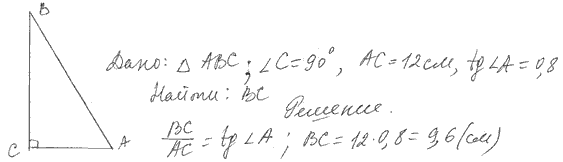 B
Дано: △ ABC; ∠C=90°, AC=12см, tg∠A=0,8
Найти: BC
Решение.
BC/AC = tg∠A; BC=12·0,8=9,6(см)
C A